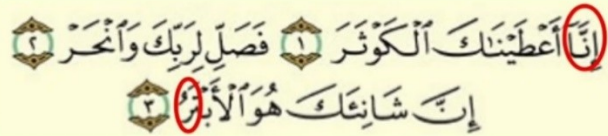 إِنَّآ أَعْطَيْنَـٰكَ ٱلْكَوْثَرَ ١ فَصَلِّ لِرَبِّكَ وَٱنْحَرْ ٢
إِنَّ شَانِئَكَ هُوَ ٱلْأَبْتَرُ ٣